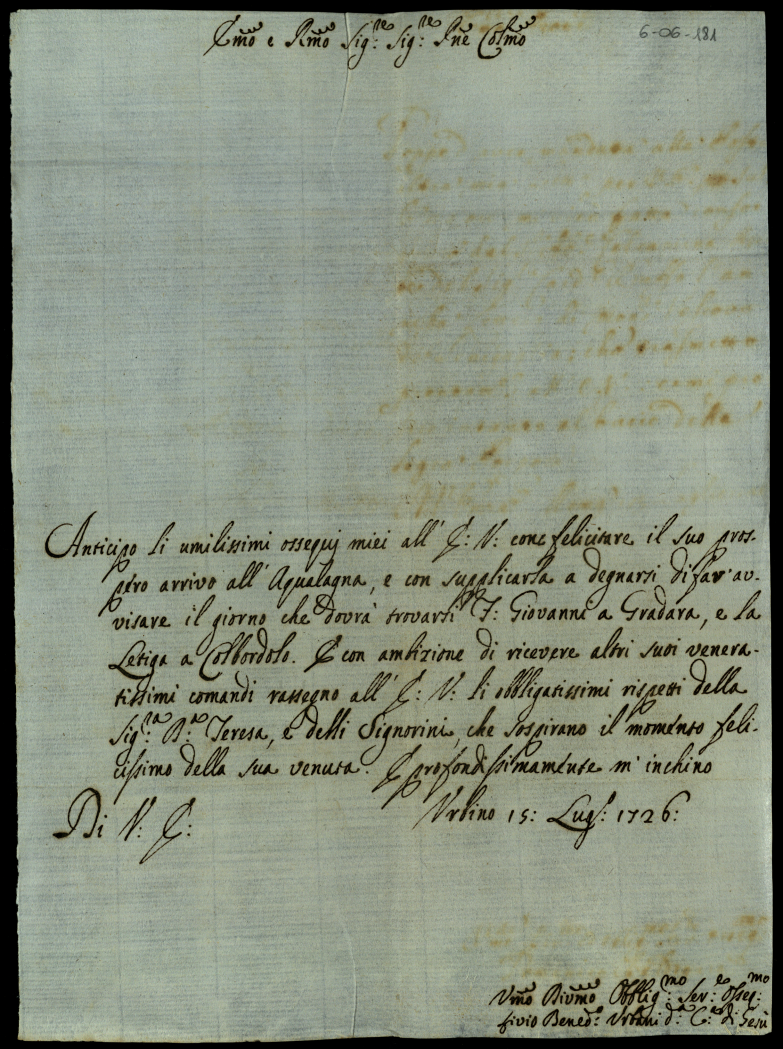 Em̃o e Rm̃o Sig:re Sig:re Pñe Colmo
6-06-181
Anticipo li umilissimi ossequj miei all' E: V: con felicitare il suo pros-
pero arrivo all' Aqualagna, e con supplicarla a degnarsi di far' av-
visare il giorno che dovrà trovarsi F: Giovanni a Gradara, e la
Letiga a Colbordolo. E con ambizione di ricevere altri suoi venera-
tissimi comandi rassegno all' E: V: li obbligatissimi rispetti della
Sig:ra Teresa, e delli Signorini, che sospirano il momento feli-
cissimo della sua venuta. E profondissimamente m' inchino
Di V: E:
Urbino 15: Lugl: 1726:
Um̃o Divm̃o Obblig:mo Ser:e Osseq:mo
Bened:o Urbani d:a C:a di Gesù